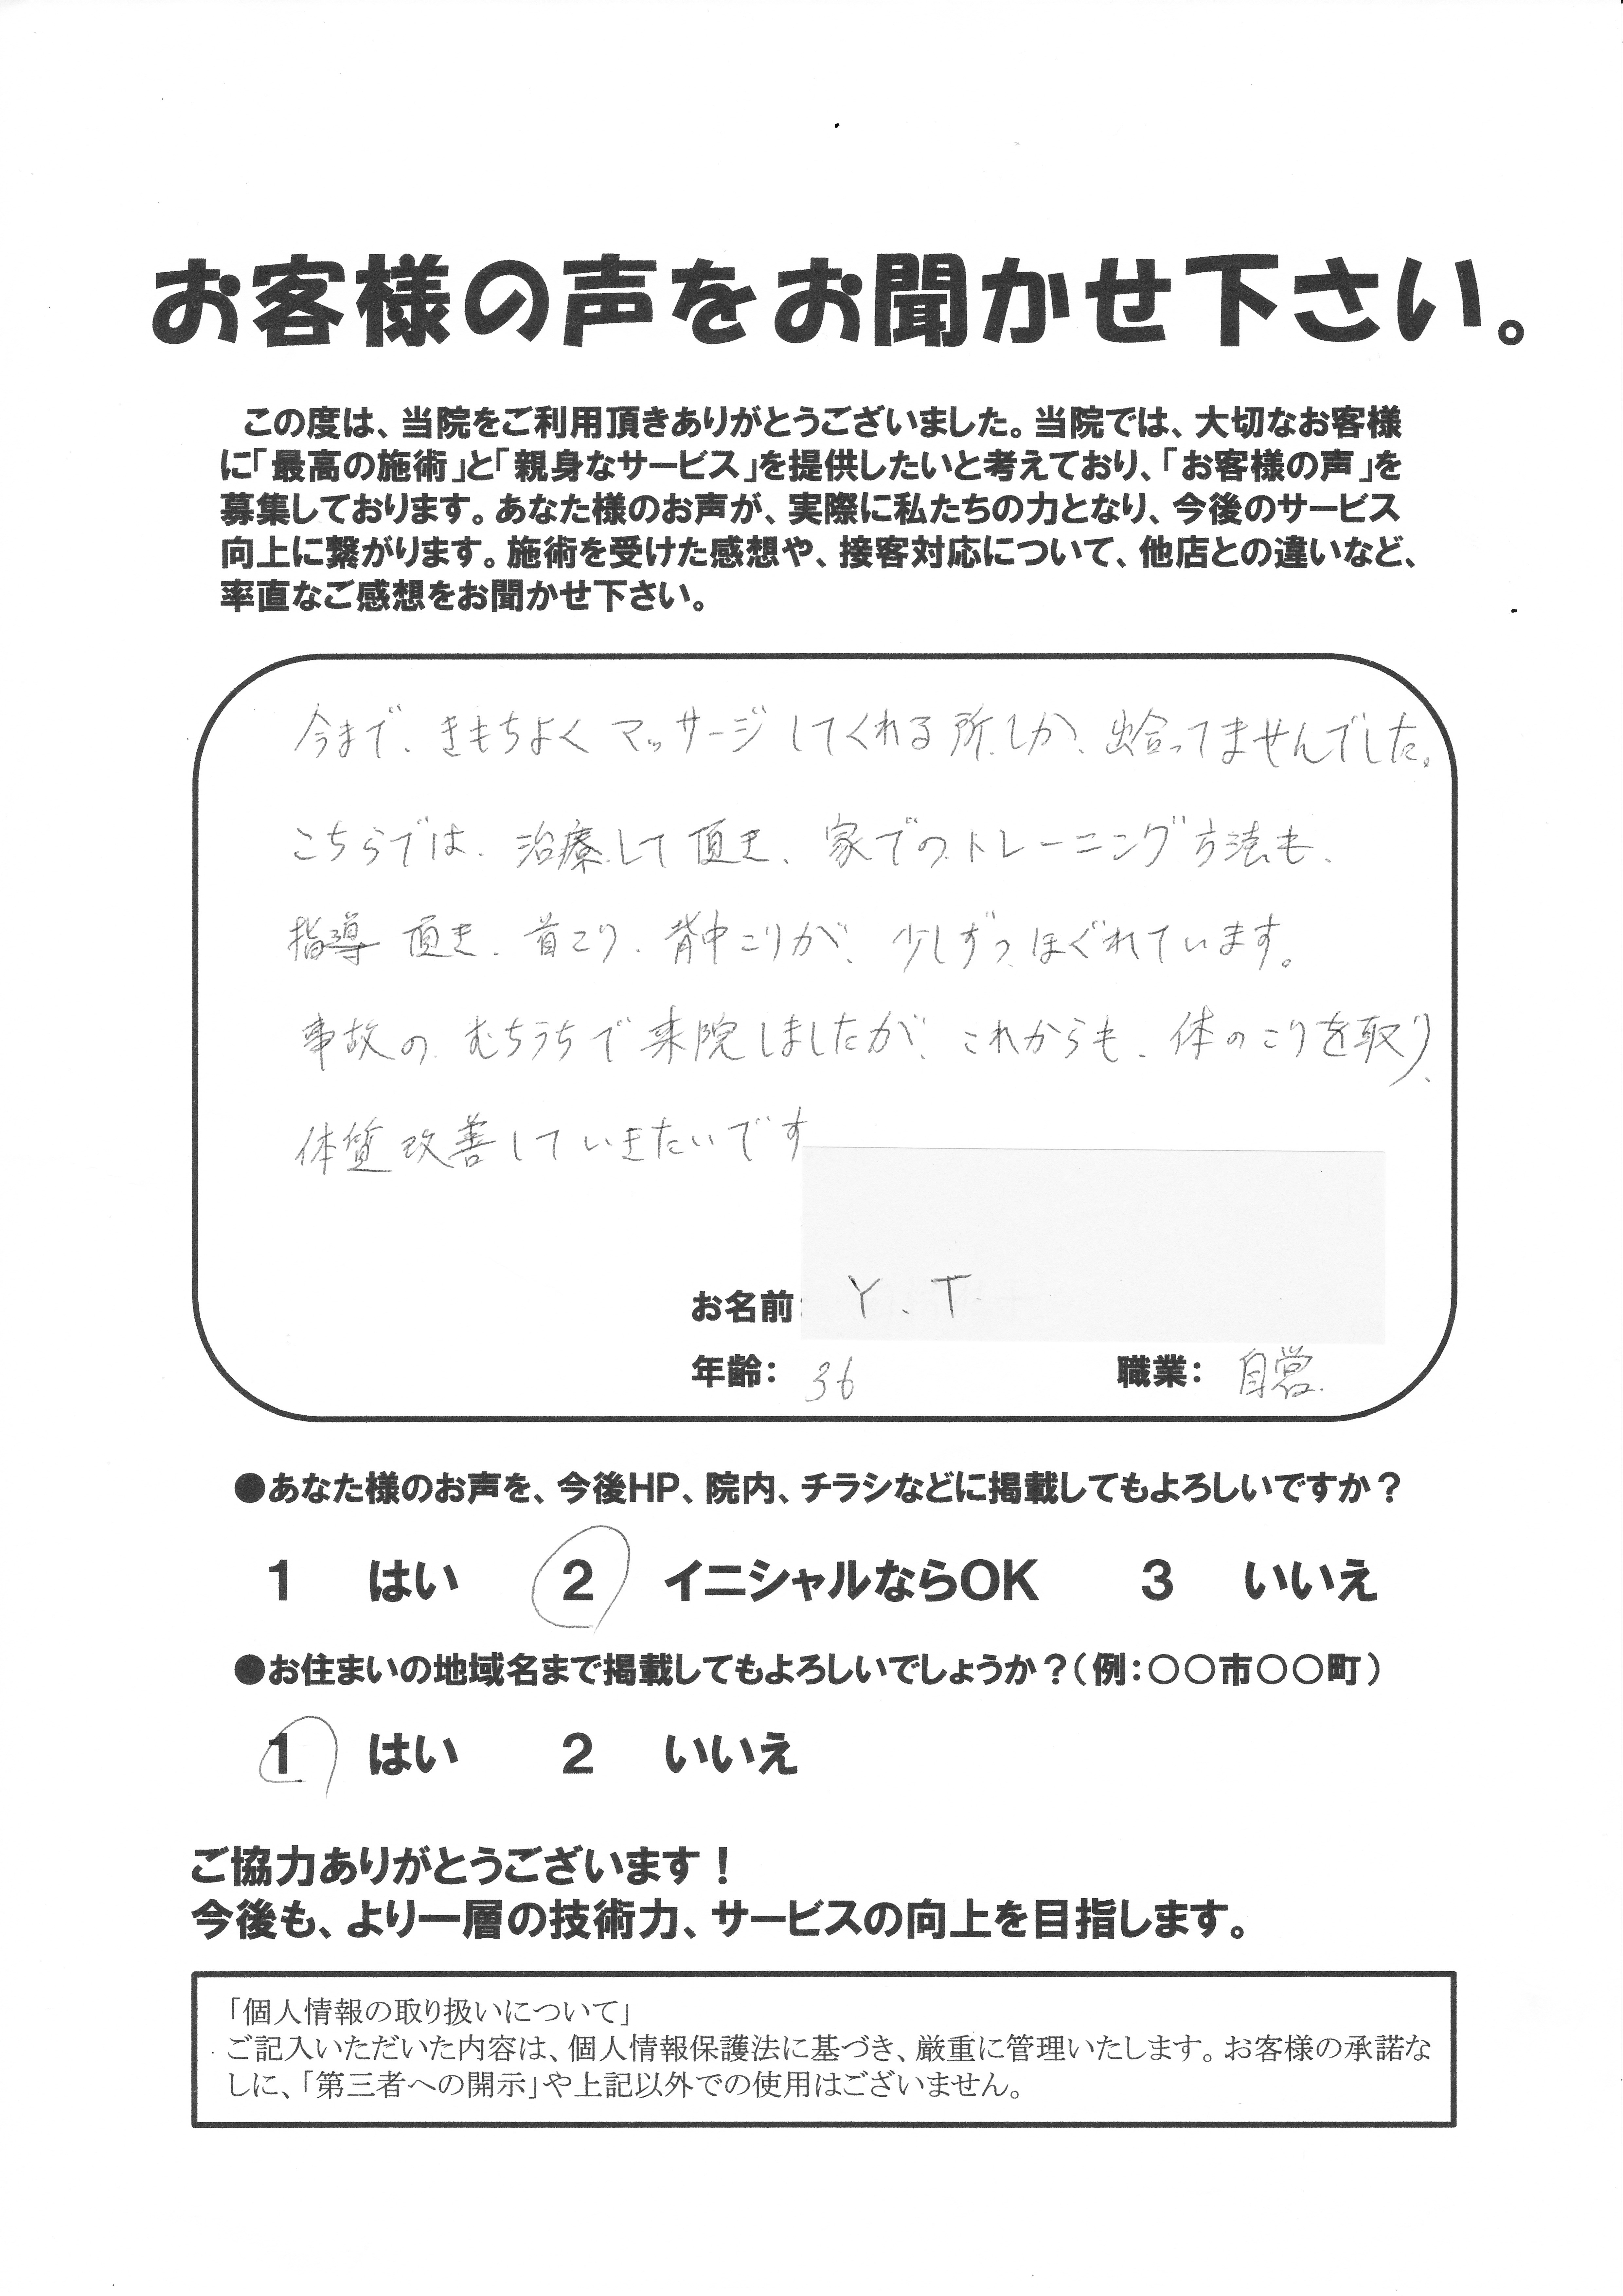 お客様の声をお聞かせ下さい。
この度は、当院をご利用頂きありがとうございました。当院では、大切なお客様
に「最高の施術」と「親身なサービス」を提供したいと考えており、「お客様の声」を
募集しております。あなた様のお声が、実際に私たちの力となり、今後のサービス
向上に繋がります。施術を受けた感想や、接客対応について、他店との違いなど、
率直なご感想をお聞かせ下さい。
今まで、きもちよくマッサージしてくれる所しか、出会ってませんでした。
こちらでは、治療して頂き、家でのトレーニング方法も、
指導頂き、首こり、背中こりが、少しずつほぐれています。
事故のむちうちで来院しましたが、これからも、体のこりを取り、
体質改善していきたいです
お名前: Y.T
年齢: 36 職業: 自営.
●あなた様のお声を、今後HP、院内、チラシなどに掲載してもよろしいですか?
1 はい 2 イニシャルならOK 3 いいえ
●お住まいの地域名まで掲載してもよろしいでしょうか?(例:○○市○○町)
1 はい 2 いいえ
ご協力ありがとうございます!
今後も、より一層の技術力、サービスの向上を目指します。
「個人情報の取り扱いについて」
ご記入いただいた内容は、個人情報保護法に基づき、厳重に管理いたします。お客様の承諾な
しに、「第三者への開示」や上記以外での使用はございません。